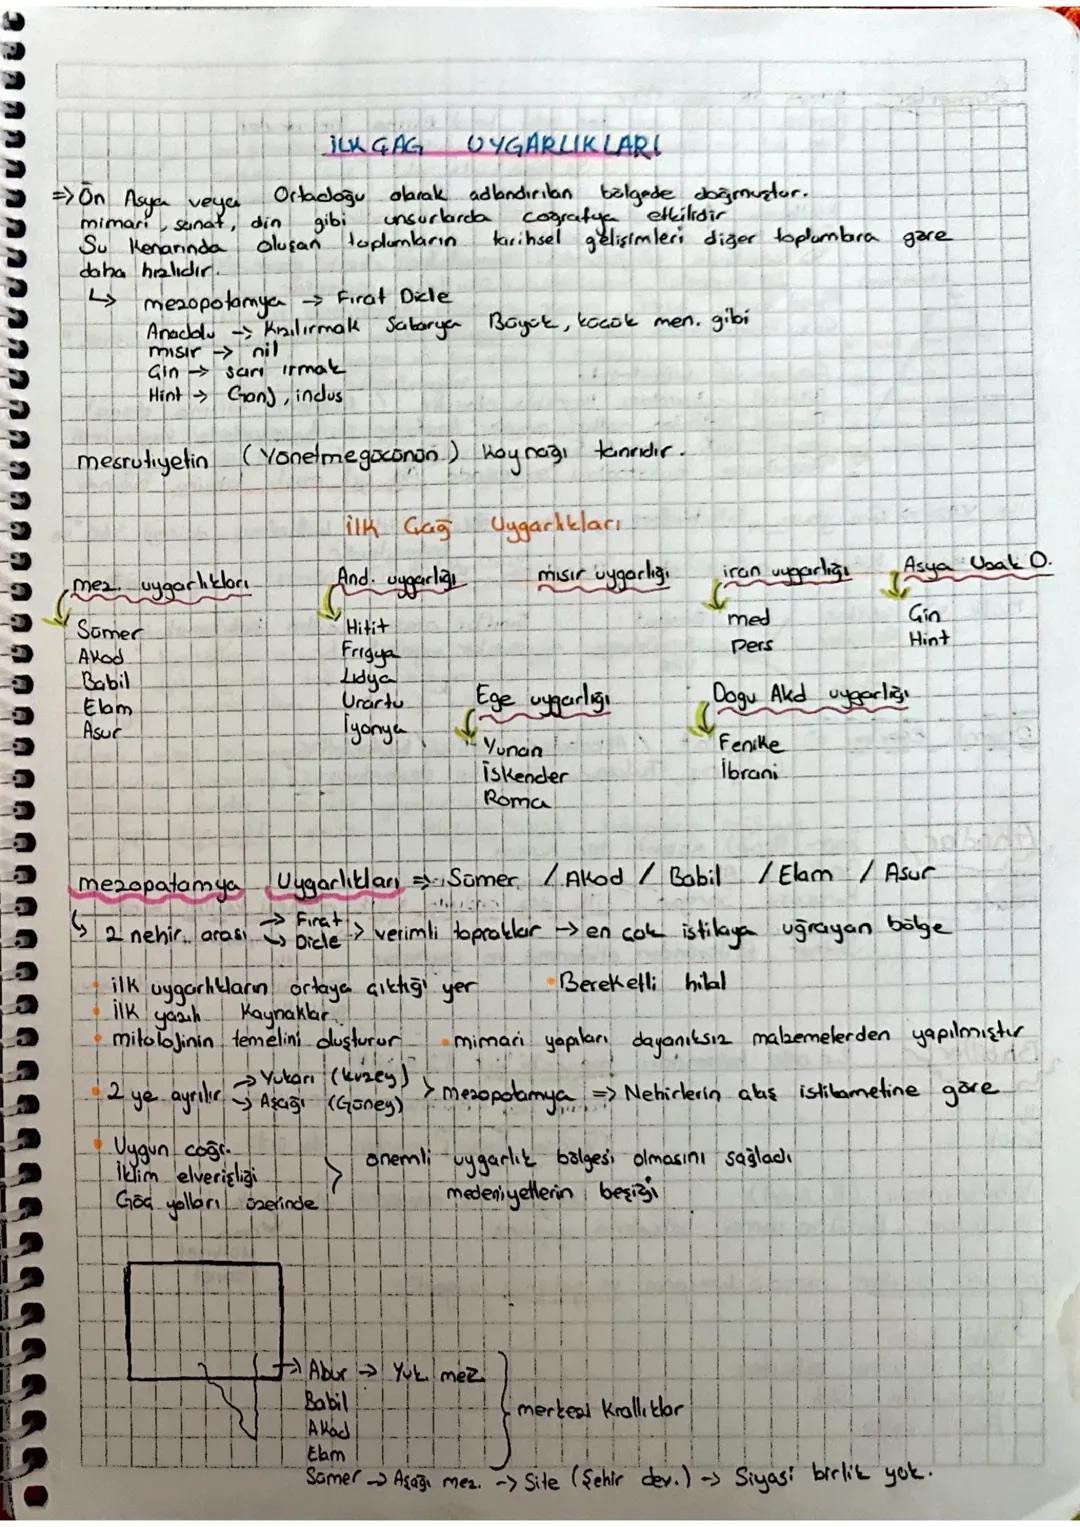 İLK ÇAĞ UYGARLIKLARI
=> Ön Asya veya Ortadoğu olarak adlandırılan bölgede doğmuştur.
mimari, sanat, din gibi unsurlarda coğrafya etkilidir
Su Kenarında oluşan toplumların tarihsel gelişimleri diğer toplumlara göre
daha hızlıdır.
↳ mezopotamya → Fırat Dicle
Anadolu → Kızılırmak Sakarya Büyük, küçük men. gibi
mısır → nil
Çin → sarı ırmak
Hint → Ganj, indus
mesrutiyetin (Yönetme gücünün) kaynağı tanrıdır.
İlk Çağ Uygarlıkları
mez. uygarlıkları
And. uygarlığı
mısır uygarlığı
iran uygarlığı
Asya Uzak D.
Sümer
Akad
Babil
Elam
Asur
Hitit
Frigya
Lidya
Urartu
İyonya
med
Pers
Çin
Hint
Ege uygarlığı
Yunan
İskender
Roma
Doğu Akd uygarlığı
Fenike
İbrani
mezopatamya Uygarlıkları => Sümer / Akad / Babil / Elam / Asur
↳ 2 nehir arası → Fırat → Dicle > verimli topraklar → en çok istilaya uğrayan bölge
• ilk uygarlıkların ortaya çıktığı yer • Bereketli hilal
• İlk yazılı Kaynaklar
• mitolojinin temelini oluşturur • mimari yapıları dayanıksız malzemelerden yapılmıştır
• 2 ye ayrılır → Yukarı (kuzey) → Aşağı (Güney) > mezopotamya => Nehirlerin akış istikametine göre
• Uygun coğr.
İklim elverişliği
Göç yolları üzerinde
önemli uygarlık bölgesi olmasını sağladı
medeniyetlerin beşiği
→ Abur → Yuk. mez.
Babil
Akad
Elam
merkezi Krallıklar
Sümer → Aşağı mez. → Site (Şehir dev.) → Siyasi birlik yok.